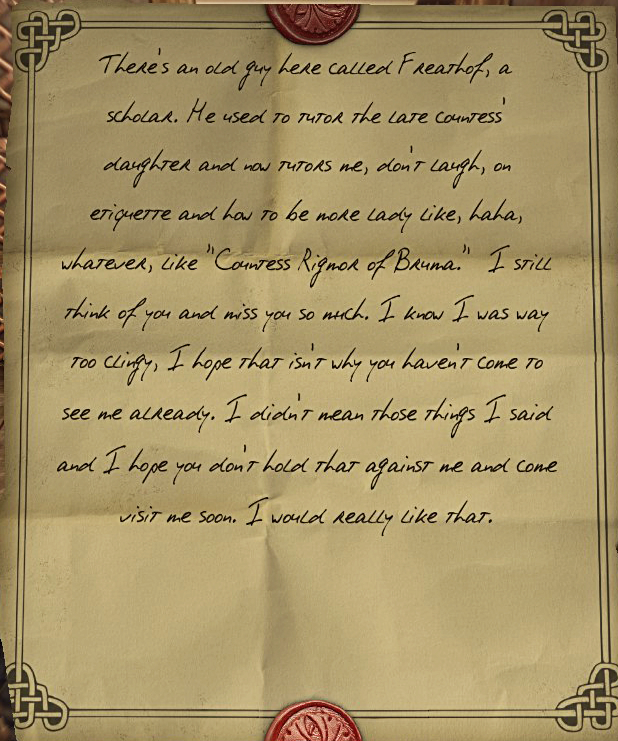 There's an old guy here called Freathof, a
scholar. He used to tutor the late Countess'
daughter and now tutors me, don't laugh, on
etiquette and how to be more lady like, haha,
whatever, like "Countess Rigmor of Bruma." I still
think of you and miss you so much. I know I was way
too clingy, I hope that isn't why you haven't come to
see me already. I didn't mean those things I said
and I hope you don't hold that against me and come
visit me soon. I would really like that.